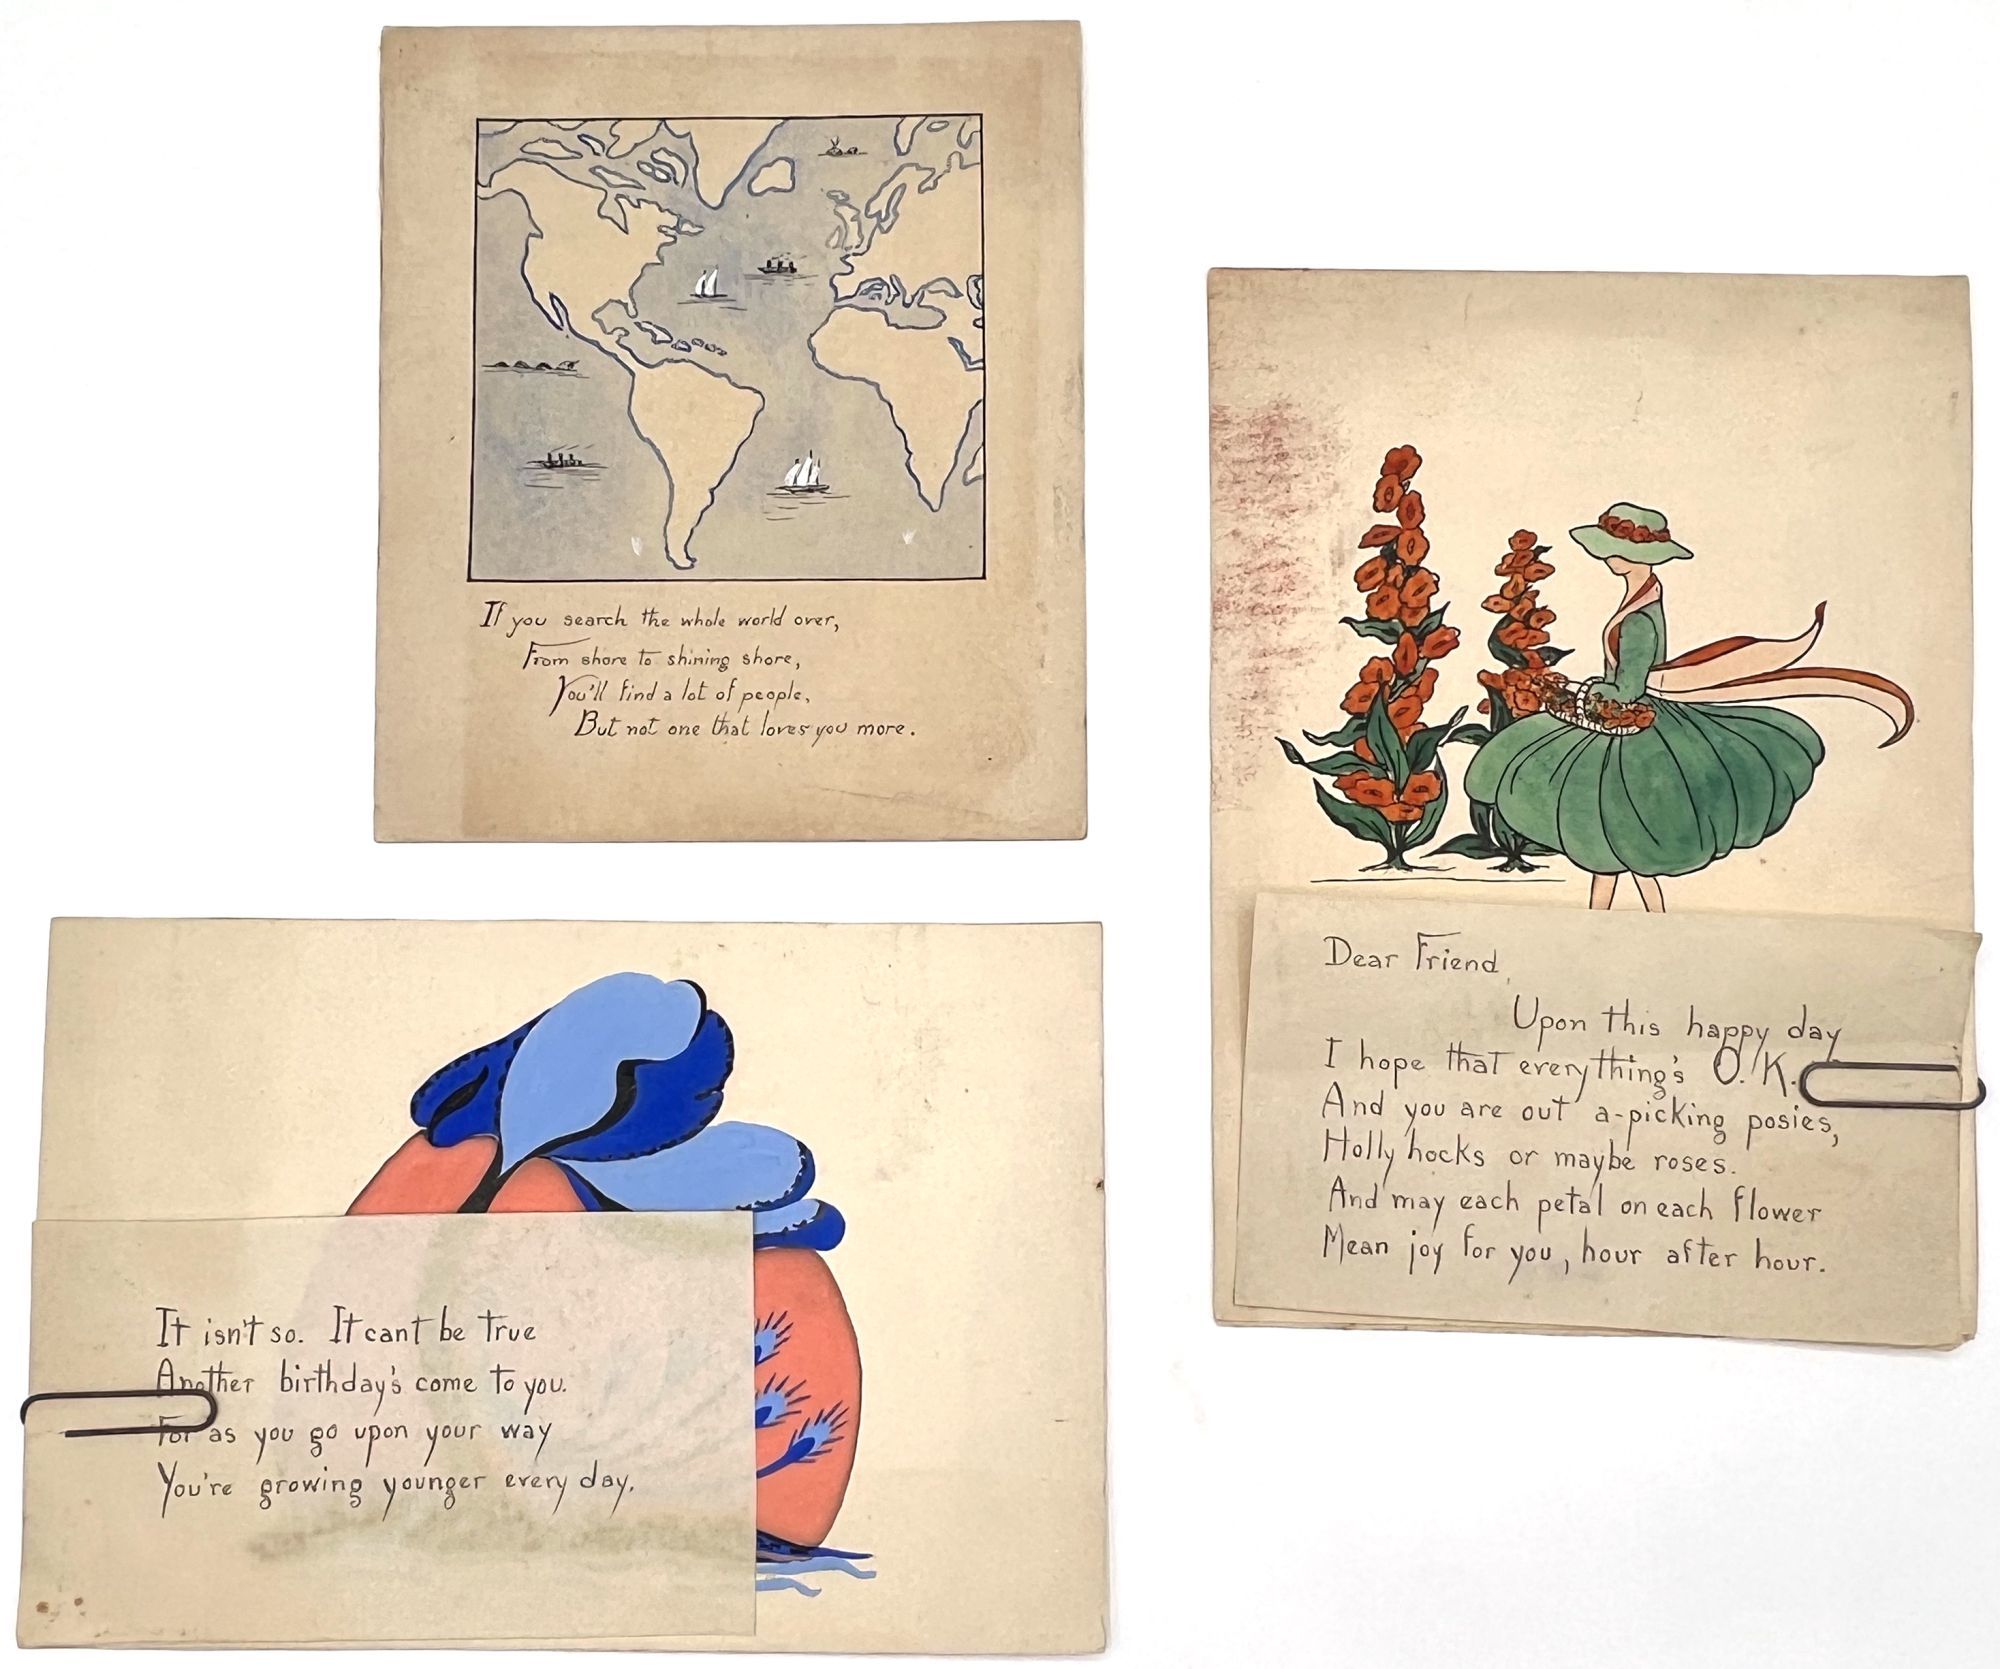 If you search the whole world over,
From shore to shining shore,
You'll find a lot of people,
But not one that loves you more.
Dear Friend,
Upon this happy day
I hope that everything's O.K.
And you are out a-picking posies,
Holly hocks or maybe roses.
And may each petal on each flower
Mean joy for you, hour after hour.
It isn't so. It cant be true
Another birthday's come to you.
For as you go upon your way
You're growing younger every day.